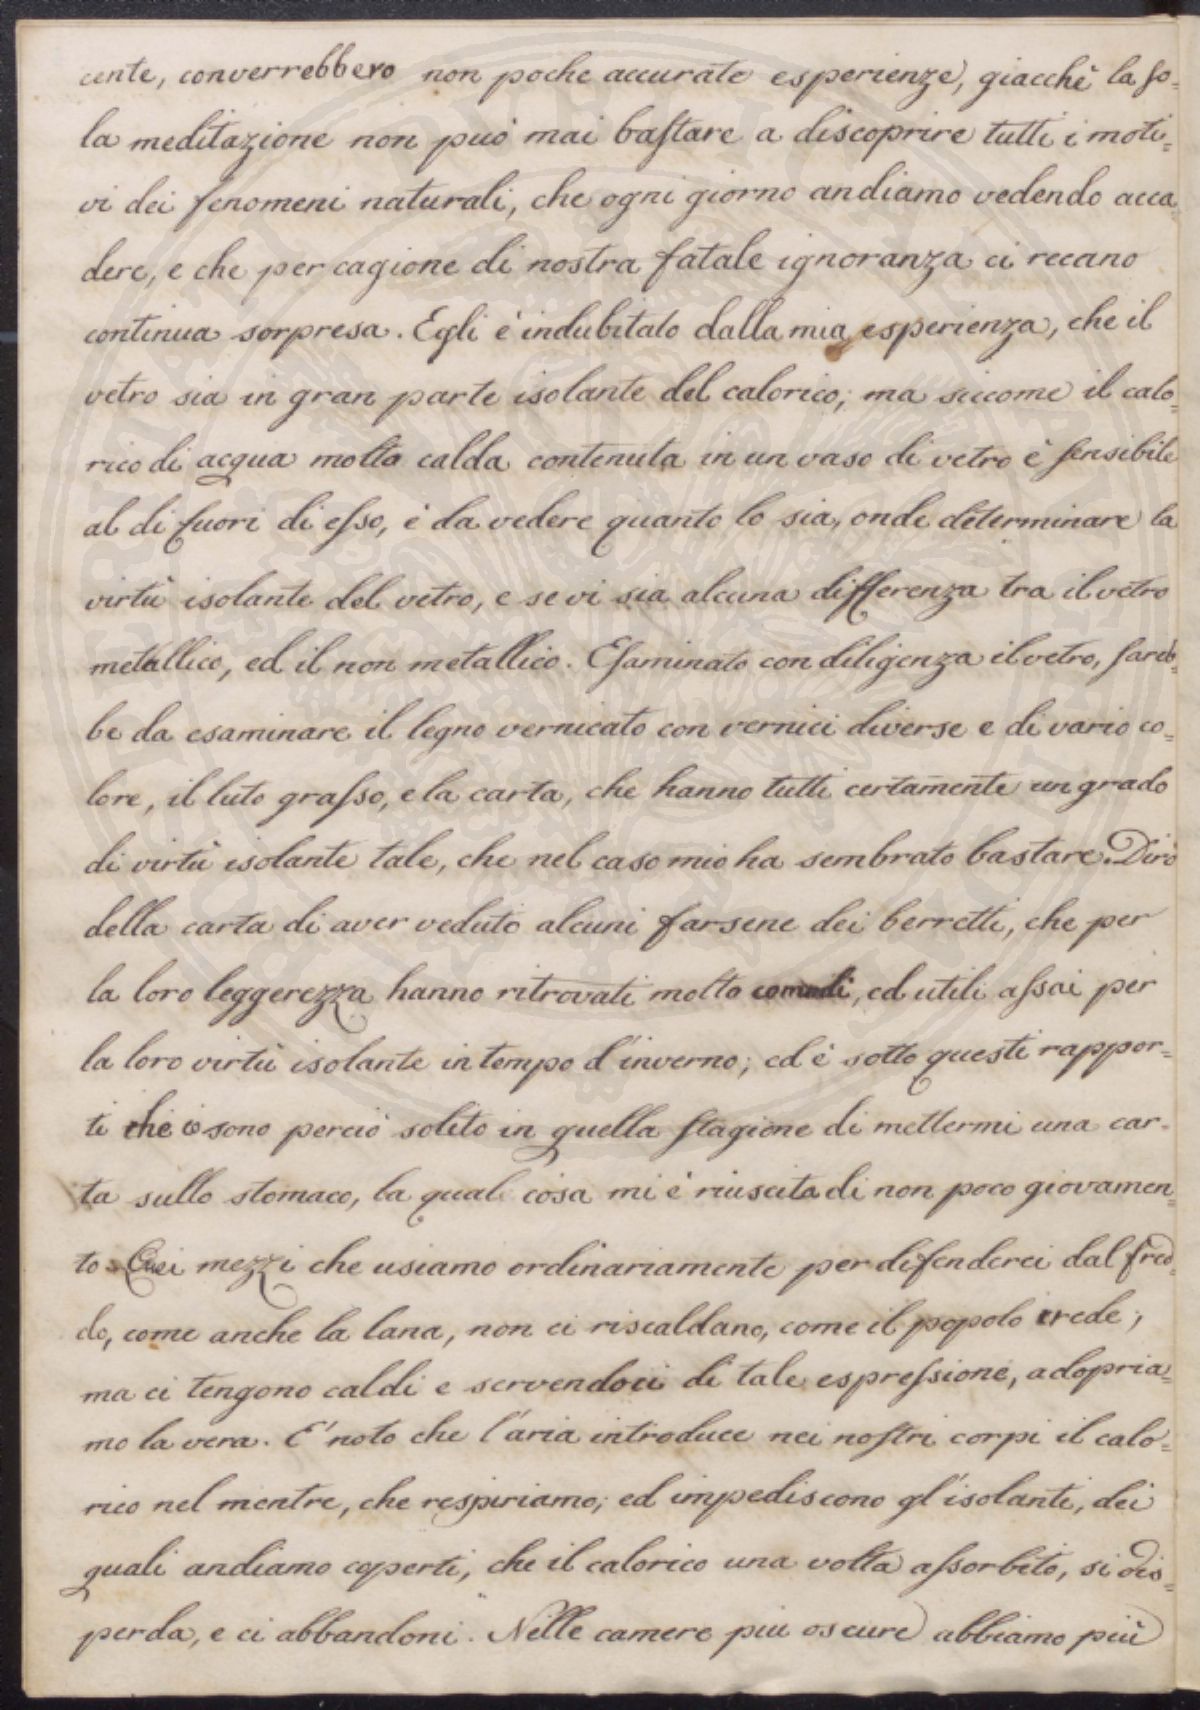 cente, converrebbero non poche accurate esperienze, giacchè la so=
la meditazione non può mai bastare a discoprire tutti i moti=
vi dei fenomeni naturali, che ogni giorno andiamo vedendo acca=
dere, e che per cagione di nostra fatale ignoranza ci recano
continua sorpresa. Egli è indubitato dalla mia esperienza, che il
vetro sia in gran parte isolante del calorico; ma siccome il calo=
rico di acqua molto calda contenuta in un vaso di vetro è sensibile
al di fuori di esso, è da vedere quanto lo sia, onde determinare la
virtù isolante del vetro, e se vi sia alcuna differenza tra il vetro
metallico, ed il non metallico. Esaminato con diligenza il vetro, sareb=
be da esaminare il legno vernicato con vernici diverse e di vario co=
lore, il luto grasso, e la carta, che hanno tutti certamente un grado
di virtù isolante tale, che nel caso mio ha sembrato bastare. Dirò
della carta di aver veduto alcuni farsene dei berretti, che per
la loro leggerezza hanno ritrovati molto comodi, ed utili assai per
la loro virtù isolante in tempo d'inverno; ed è sotto questi rappor=
ti che io sono perciò solito in quella stagione di mettermi una car=
ta sullo stomaco, la qual cosa mi è riuscita di non poco giovamen=
to. Quei mezzi che usiamo ordinariamente per difenderci dal fred=
do, come anche la lana, non ci riscaldano, come il popolo crede;
ma ci tengono caldi e servendoci di tale espressione, adopria=
mo la vera. E' noto che l'aria introduce nei nostri corpi il calo=
rico nel mentre, che respiriamo; ed impediscono gl'isolanti, dei
quali andiamo coperti, che il calorico una volta assorbito, si dis=
perda, e ci abbandoni. Nelle camere più oscure abbiamo più